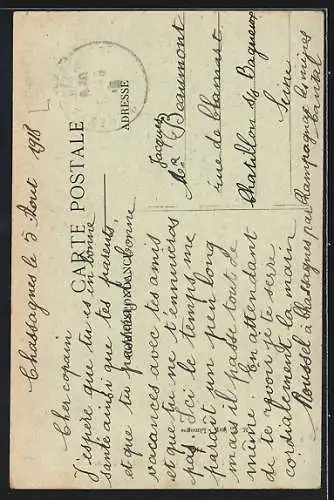 CARTE POSTALE
CORRESPONDANCE
ADRESSE
Chassagnes le 5 Aout 1918
Cher copain
J'espère que tu es en bonne
santé ainsi que tes parents,
et que tu passes de bonne
vacances avec tes amis
et que tu ne t'ennuieras
pas. Ici le temps me
paraît un peu long
mais il passe tout de
même. En attendant
de te revoir je te serre
cordialement la main
Roussel à Chassagnes par Champagnac les mines
Cantal
Mr Jacques Beaumont
rue de Clamart
Chatillon s/s Bagneux
Seine
Limoges